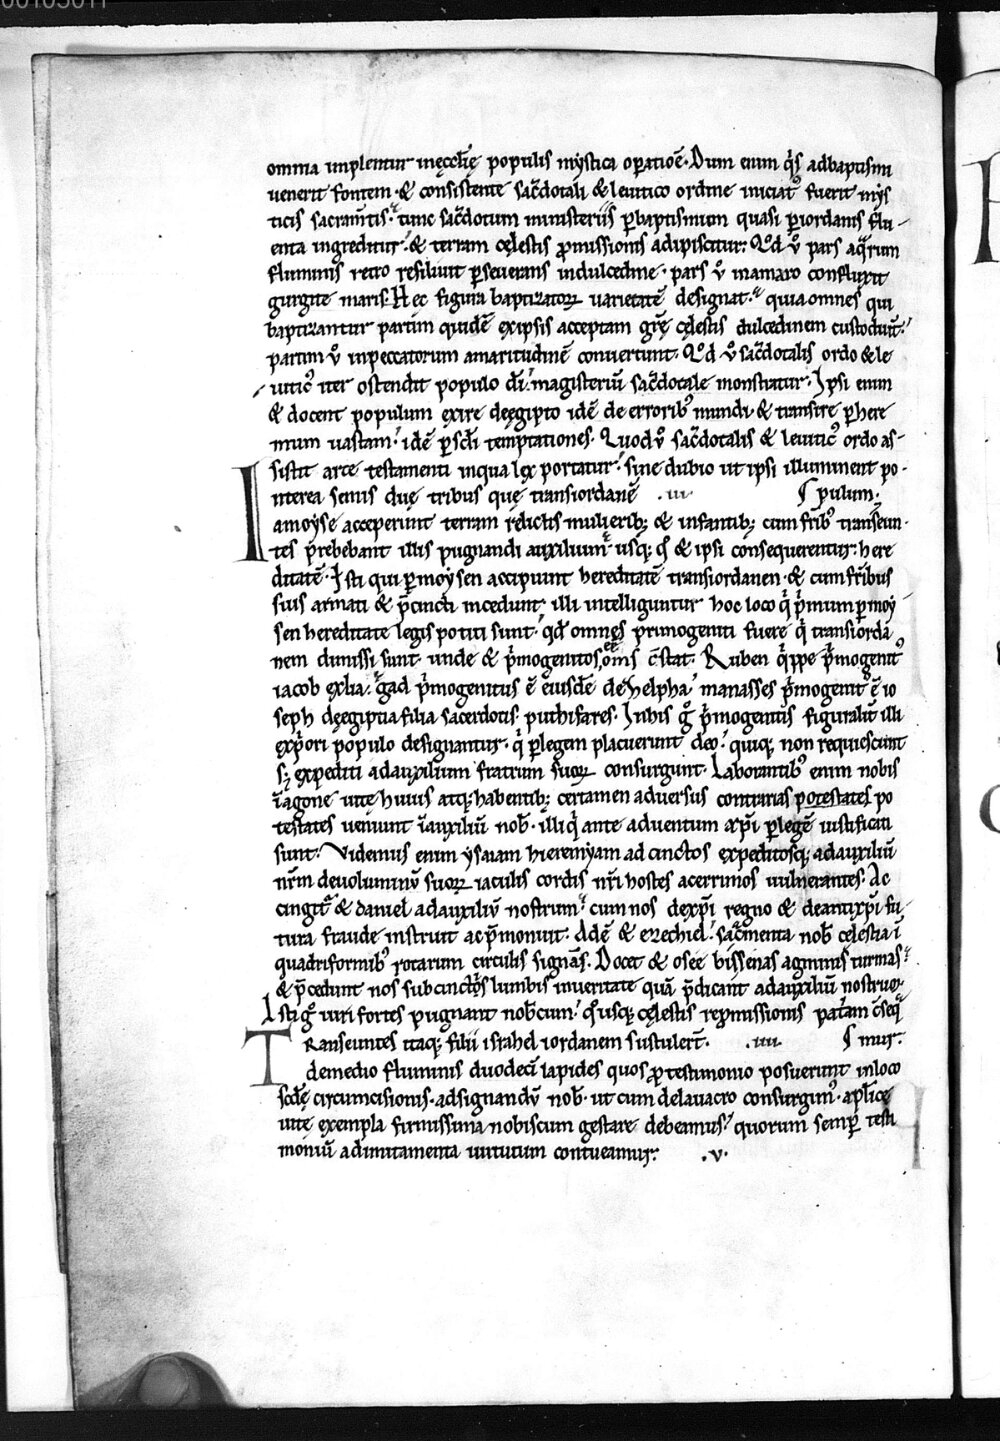 omnia implentur inęccłię populis mystica oꝑatioē. Dum enim q̇s adbaptismi
uenerit fontem. & consistente sac̄dotali & leuitico ordine iniciatˀ fuerit mys
ticis sacram̄tis. tunc sac̄dotum ministeriis ꝑbaptismum quasi ꝑiordanis flu-
enta ingreditur. & terram cęlestis ꝓmissionis adipiscitur. Qd̄ ů pars aq̄rum
fluminis retro resiliuit ꝑseuerans indulcedine. pars ů inamaro confluxit
gurgite maris. Hęc figura baptizatoꝝ uarietatē designat. quia omnes qui
baptizantur partim quidē exipsis acceptam grē̄ cęlestis dulcedinem custodiun̄t.
partim ů inpeccatorum amaritudinē conuertunt. Qd̄ ů sac̄dotalis ordo & le
uiticˀ iter ostendit populo dī. magisteriū sac̄dotale monstratur. Ipsi enim
& docent populum exire deęgipto idē de erroribˀ mundi. & transire ꝑhere
mum uastam. idē ꝑscd̄i temptationes. Quod ů sac̄dotalis & leuiticˀ ordo as-
sistit arce testamenti inqua lex portatur. sine dubio ut ipsi illuminent po-
Interea semis duę tribus quę transiordanē .iii. pulum.
amoyse acceperunt terram relictis mulierib; & infantib; cum frib̄ˀ transeun-
tes p̄bebant illis pugnandi auxilium. usq; q̊ & ipsi consequerentur. here
ditatē. Isti qui ꝑmoysen accipiunt hereditatē transiordanen. & cum fr̄ibus
suis armati & p̄cincti incedunt. illi intelliguntur hoc loco q̇ p̄mum ꝑmoy-
sen hereditate legis potiti sunt. qd̄ omnes primogeniti fuere q̇ transiordā
nem dimissi sunt. unde & p̄mogenitos eē om̄s c̄stat. Ruben q̇ppe p̄mogenitˀ
iacob exlia. gad p̄mogenitus ē eiusdē dehelpha. manasses p̄mogenitˀ ē io
seph deęgiptia filia sacerdotis. puthifares. Inhis g̊ p̄mogenitis figuralit̄ illi
exp̄ori populo designantur. q̇ ꝑlegem placuerunt deo. quiq; non requiescunt
s; expediti adauxilium fratrum suoꝝ consurgunt. Laborantibˀ enim nobis
īagone uitę huius atq; habentib; certamen aduersus contrarias potestates po
testates ueniunt īauxiliū nob̄. illi q̇ ante aduentum xp̄i ꝑlegē iustificati
sunt. Videmus enim ysaiam hieremyam adcinctos expeditosq; adauxiliū
nr̄m deuoluminiū suoꝝ iaculis cordis nr̄i hostes acerrimos uulnerantes. Ac
cingit̄ & daniel adauxiliū nostrum. cum nos dexp̄i regno & deantixp̄i fu-
tura fraude instruit ac p̄monuit. Adē & ezechiel. sac̄menta nob̄ cęlestia ī
quadriformibˀ rotarum circulis signās. Docet & osee bissenas agminis turmas.
& p̄cedunt nos subcinctis lumbis inueritate quā p̄dicant adauxiliū nostruꝝ.
Isti g̊ uiri fortes pugnant nob̄cum. q̊usq; cęlestis repromissionis pat̄am c̄seq̄
Transeuntes itaq; filii israhel iordanem sustuler̄t. .iiii. mur.
demedio fluminis duodecī lapides quos ꝓtestimonio posuerunt inloco
scd̄ę circumcisionis. adsignandū nob̄. ut cum delauacro consurgim̄ˀ. apl̄icę
uitę exempla firmissima nobiscum gestare debeamus. quorum semꝑ testi
moniū adimitamenta uirtutum contueamur. .v.